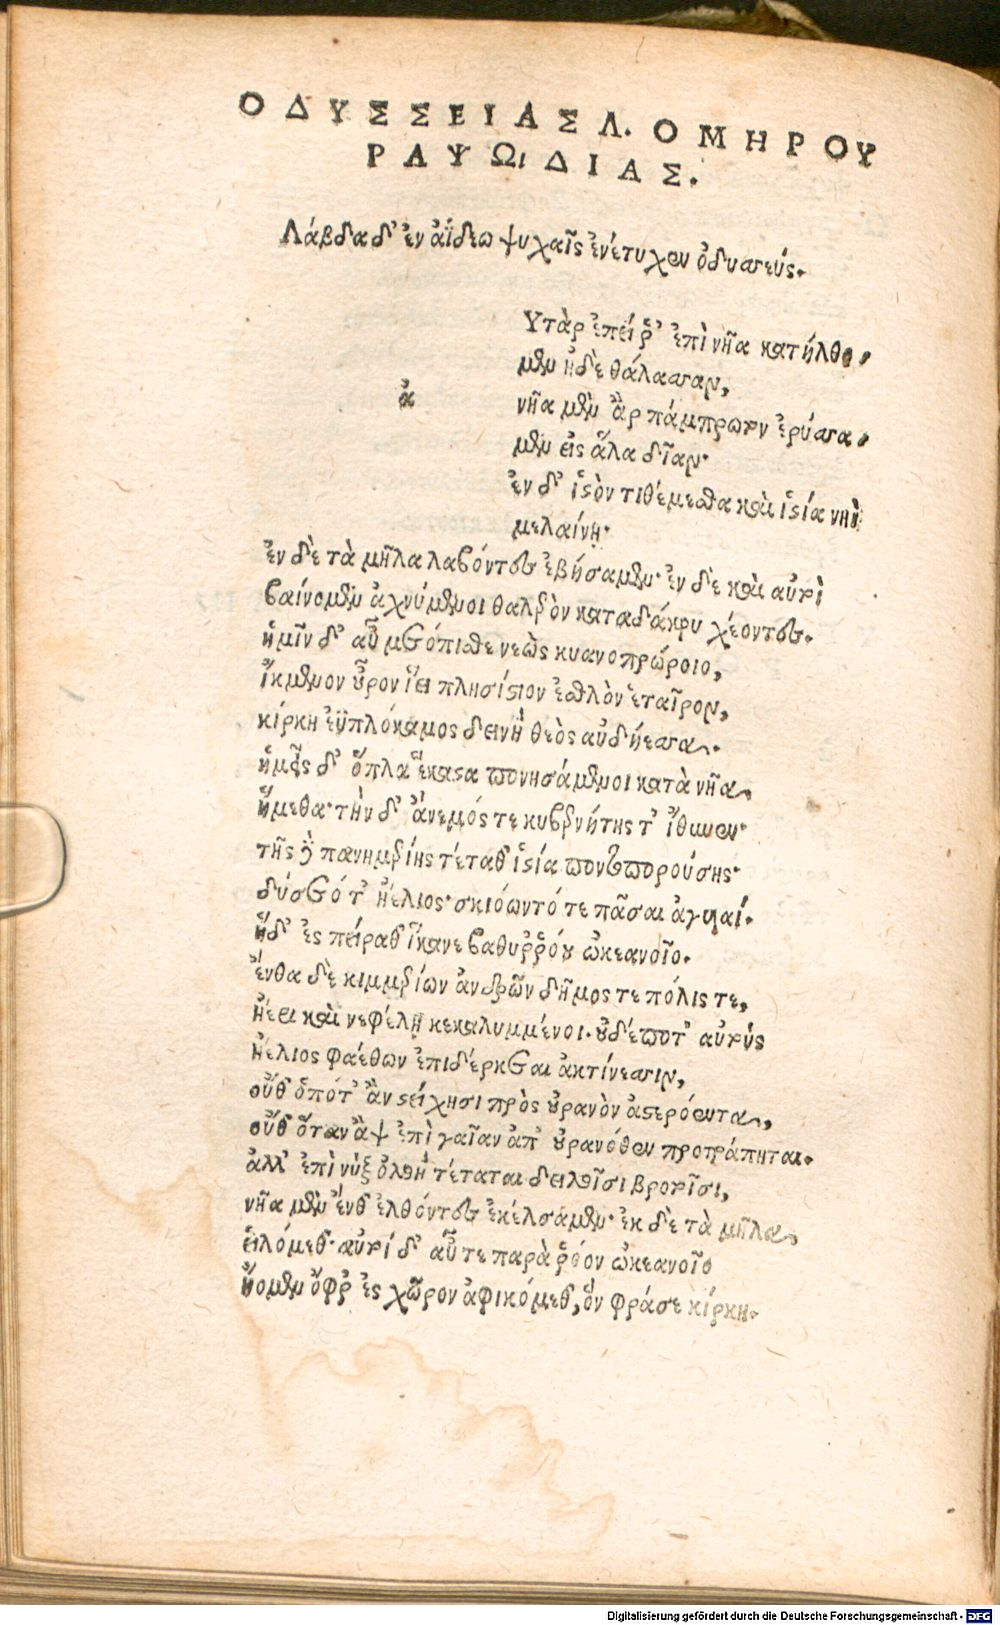 ΟΔΥΣΣΕΙΑΣ Λ. ΟΜΗΡΟΥ
ΡΑΨΩΙΔΙΑΣ.
Λάβδα δ' ἐν ἀΐδεω ψυχαῖς ἐνέτυχεν ὀδυσσεύς.
Υτὰρ ἐπεί ῥ' ἐπὶ νῆα κατήλθο,
μεν ἠδὲ θάλασσαν,
ἀ
νῆα μὲν ἂρ πάμπρωτον ἐρύσσα,
μεν εἰς ἅλα δῖαν·
ἐν δ' ἱστὸν τιθέμεσθα καὶ ἱστία νηῒ
μελαίνῃ·
ἐν δὲ τὰ μῆλα λαβόντες ἐβήσαμεν· ἐν δὲ καὶ αὐτοὶ
βαίνομεν ἀχνύμενοι θαλερὸν καταδάκρυ χέοντες.
ἡμῖν δ' αὖ μετόπισθε νεὼς κυανοπρώροιο,
ἴκμενον οὖρον ἵει πλησίστιον ἐσθλὸν ἑταῖρον,
κίρκη ἐϋπλόκαμος δεινὴ θεὸς αὐδήεσσα.
ἡμεῖς δ' ὅπλα ἕκαστα πονησάμενοι κατὰ νῆα,
ἥμεθα· τὴν δ' ἄνεμός τε κυβερνήτης τ' ἴθυνεν·
τῆς δὲ πανημερίης τέταθ' ἱστία ποντοπορούσης·
δύσετό τ' ἠέλιος· σκιόωντό τε πᾶσαι ἀγυιαί.
ἥδ' ἐς πείραθ' ἵκανε βαθυῤῥόου ὠκεανοῖο.
ἔνθα δὲ κιμμερίων ἀνδρῶν δῆμος τε πόλις τε,
ἠέρι καὶ νεφέλῃ κεκαλυμμένοι· οὐδέποτ' αὐτοὺς
ἠέλιος φαέθων ἐπιδέρκεται ἀκτίνεσσιν,
οὔθ' ὁπότ' ἂν στείχησι πρὸς οὐρανὸν ἀστερόεντα,
οὔθ' ὅταν ἂψ ἐπὶ γαῖαν ἀπ' οὐρανόθεν προτράπηται.
ἀλλ' ἐπὶ νὺξ ὀλοὴ τέταται δειλοῖσι βροτοῖσι,
νῆα μὲν ἔνθ' ἐλθόντες ἐκέλσαμεν· ἐκ δὲ τὰ μῆλα,
εἱλόμεθ'· αὐτοὶ δ' αὖτε παρὰ ῥόον ὠκεανοῖο
ἤομεν ὄφρ' ἐς χῶρον ἀφικόμεθ', ὃν φράσε κίρκη.
Digitalisierung gefördert durch die Deutsche Forschungsgemeinschaft - DFG